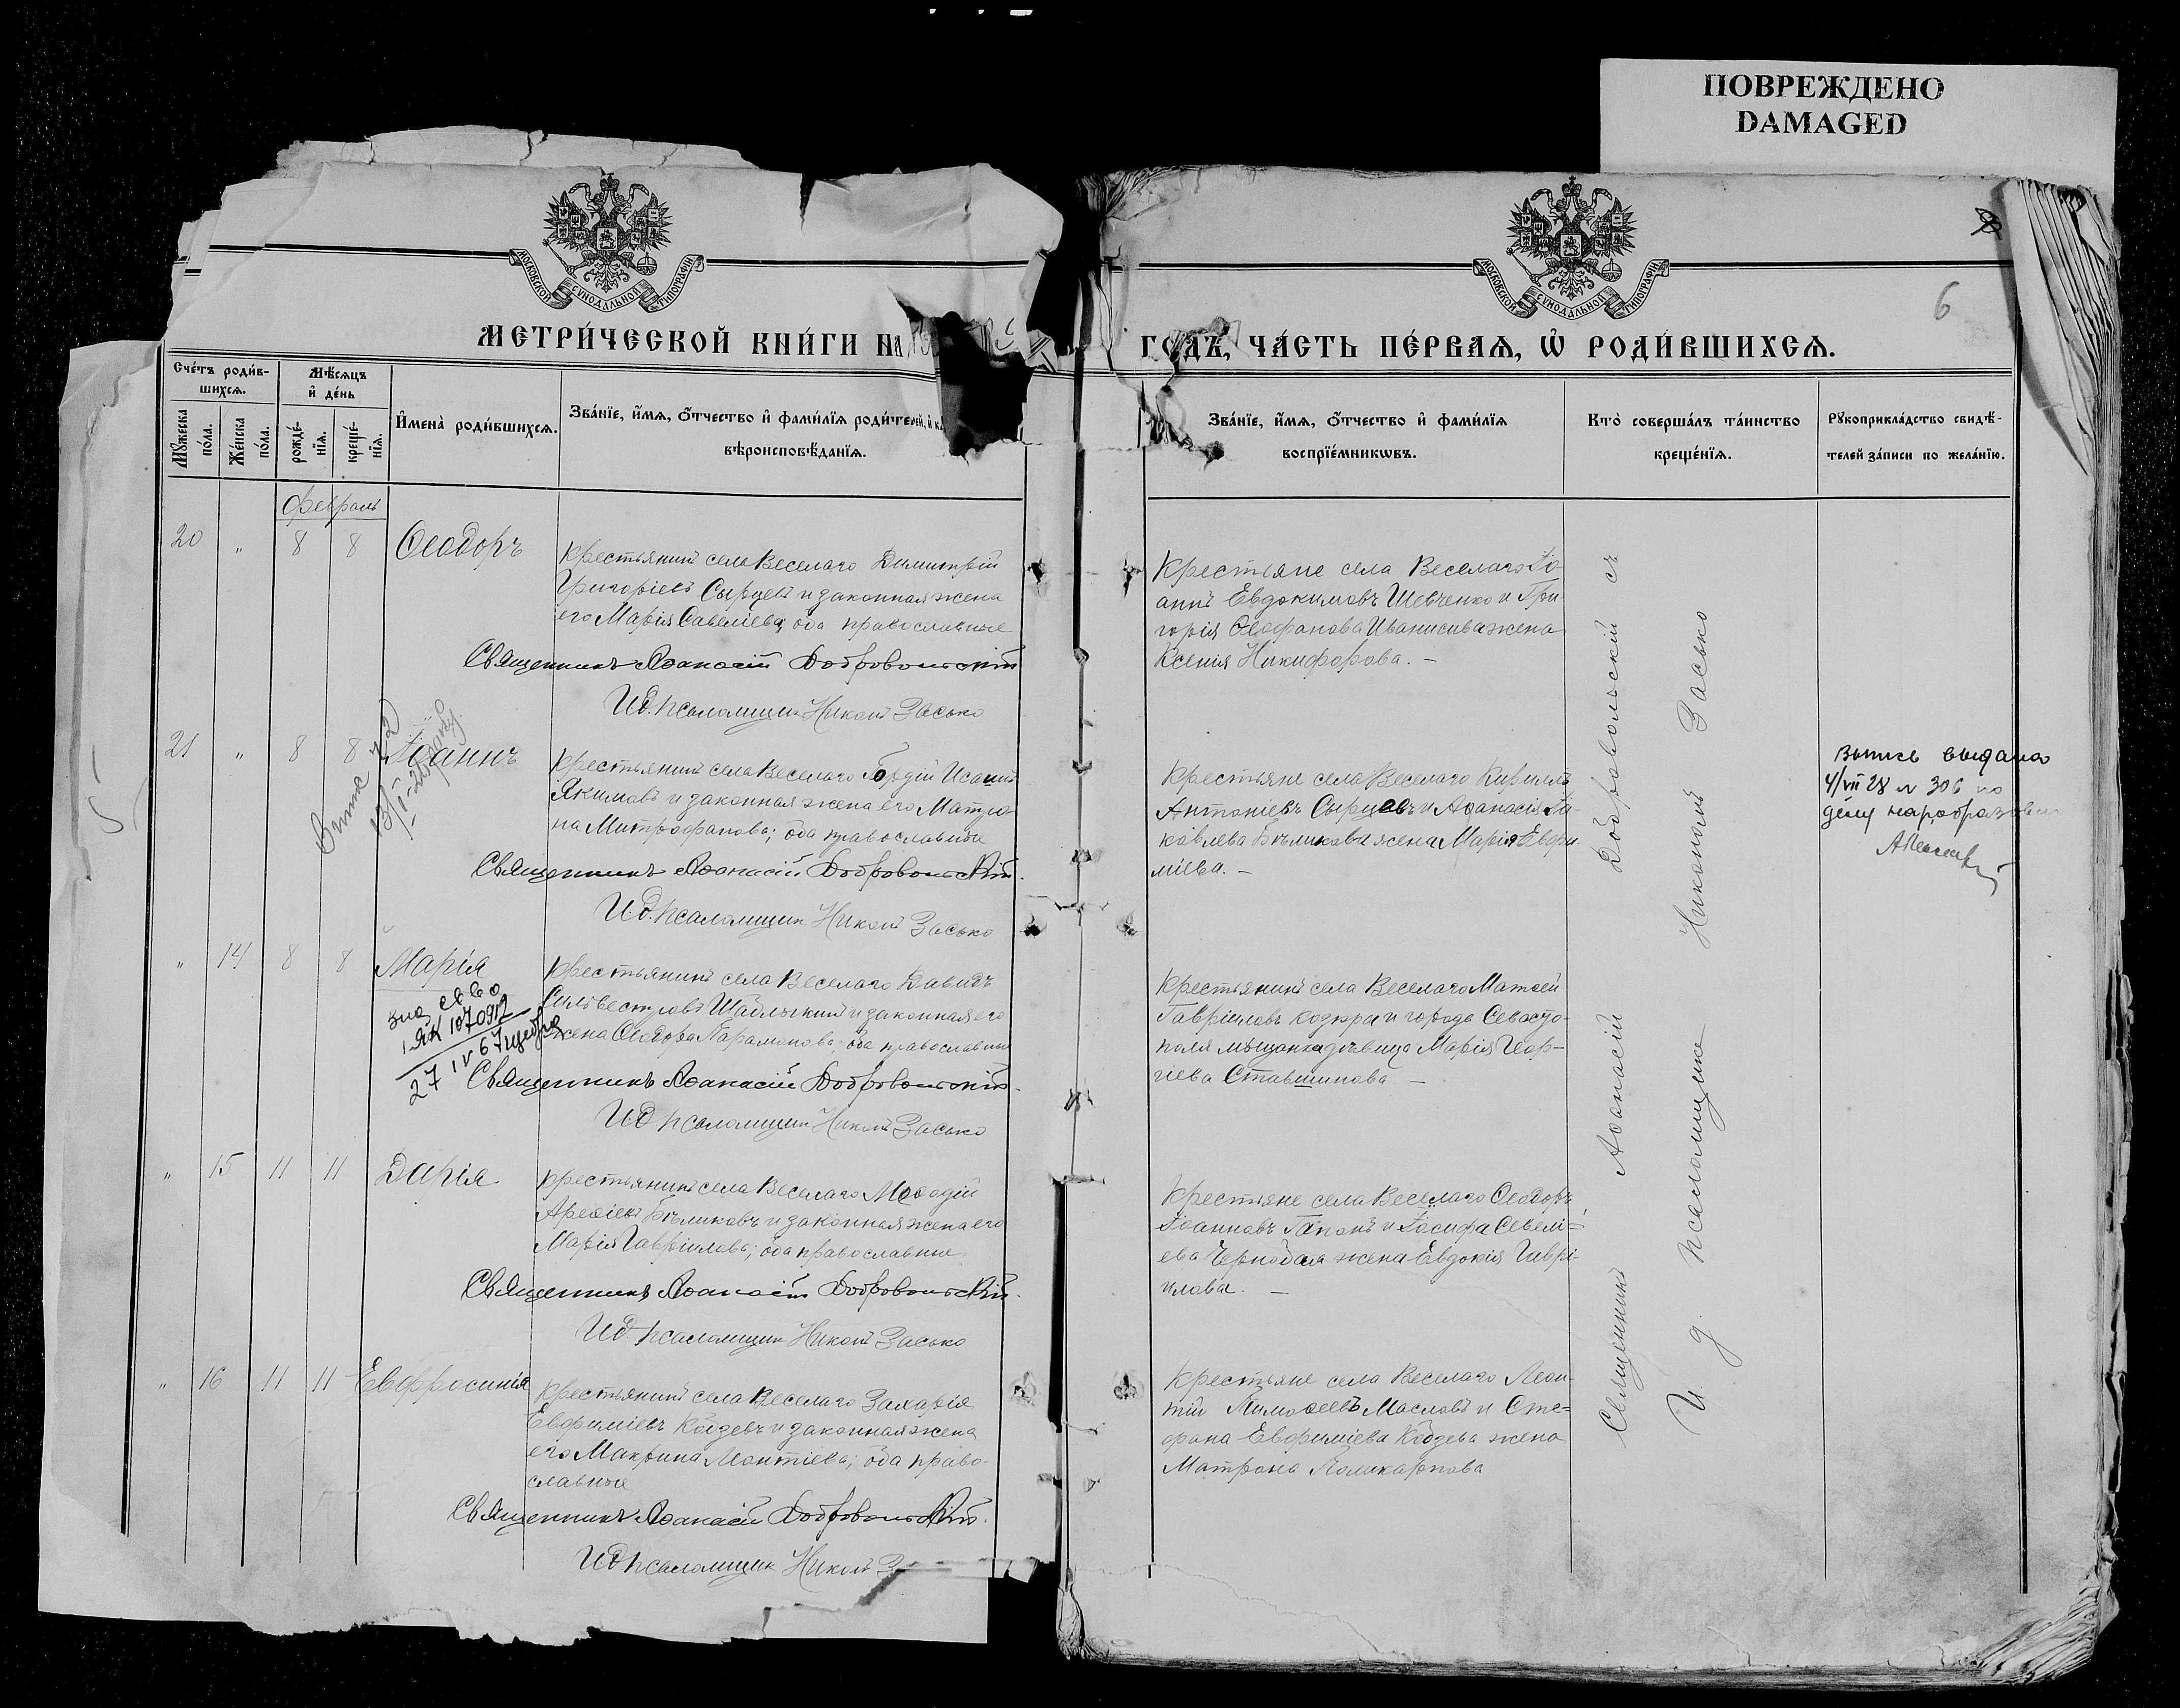 ПОВРЕЖДЕНО
DAMAGED
МОСКОВСКОЙ СѴНОДАЛЬНОЙ ТИПОГРАФІИ
МОСКОВСКОЙ СѴНОДАЛЬНОЙ ТИПОГРАФІИ
6
МЕТРИ́ЧЕСКОЙ КНИ́ГИ НА
ГОДЪ, ЧА́СТЬ ПЕ́РВАѦ, Ѡ РОДИ́ВШИХСѦ.
Сче́тъ роди́в-
шихсѧ.
Мѣ́сѧцъ
и҆ де́нь
Мꙋ́жеска
по́ла.
Же́нска
по́ла.
рожде́-
нїѧ.
креще́-
нїѧ.
И҆мена̀ роди́вшихсѧ.
Зва́нїе, и҆́мѧ, ѻ҆́тчество и҆ фами́лїѧ роди́телей, и҆ к
вѣроисповѣ́данїѧ.
Зва́нїе, и҆́мѧ, ѻ҆́тчество и҆ фами́лїѧ
воспрїе́мникѡвъ.
Кто̀ соверша́лъ та́инство
креще́нїѧ.
Рꙋкоприкла́дство свидѣ́-
телей за́писи по жела́нїю.
февраль
20 " 8 8 Ѳеодоръ
Крестьянинъ села Веселаго Димитрій
Григоріевъ Сырцевъ и законная жена
его Марія Савеліева; оба православные
Священникъ Аѳанасій Добровольскій
И.д. псаломщик Никонъ Засько
Крестьяне села Веселаго Іо-
аннъ Евдокимовъ Шевченко и Гри-
горія Ѳеофанова Иванисива жена
Ксенія Никифорова. —
21 " 8 8 Іоаннъ
Крестьянинъ села Веселаго Гордій Исаіинъ
Якимовъ и законная жена его Матро-
на Митрофанова; оба православные
Священникъ Аѳанасій Добровольскій.
И.д. псаломщик Никонъ Засько
Крестьяне села Веселаго Кириллъ
Антоніевъ Сырцевъ и Аѳанасія Іа-
ковлева Бѣликова жена Марія Евфи-
міева. —
Выпись выдана
4/VII 28 № 306 по
делу нар.образован
" 14 8 8 Марія
ЯК 107092
27 IV 67
Крестьянинъ села Веселаго Давидъ
Сильвестровъ Шаблыкинъ и законная его
жена Ѳеодора Парамонова; оба православные
Священникъ Аѳанасій Добровольскій.
И.д. псаломщик Никонъ Засько
Крестьянинъ села Веселаго Матѳей
Гавріиловъ Кодюра и города Севасто-
поля мѣщанка дѣвица Марія Геор-
гіева Ставшинова —
" 15 11 11 Дарія
Крестьянинъ села Веселаго Меѳодій
Арефіевъ Бѣликовъ и законная жена его
Марія Гавріилова; оба православные
Священникъ Аѳанасій Добровольскій.
И.д. псаломщик Никонъ Засько
Крестьяне села Веселаго Ѳеодоръ
Іоанновъ Гапонъ и Іосифа Савелі-
ева Чернобая жена Евдокія Гаврі-
илова. —
" 16 11 11 Евфросинія
Крестьянинъ села Веселаго Захарія
Евфиміевъ Кобзевъ и законная жена
его Макрина Леонтіева; оба право-
славные
Священникъ Аѳанасій Добровольскій.
И.д. псаломщик Никонъ
Крестьяне села Веселаго Леон-
тій Тимоѳеевъ Масловъ и Сте-
фана Евфиміева Кобзева жена
Матрона Поликарпова
Священникъ Аѳанасій Добровольскій съ
И. д. псаломщика Никономъ Засько